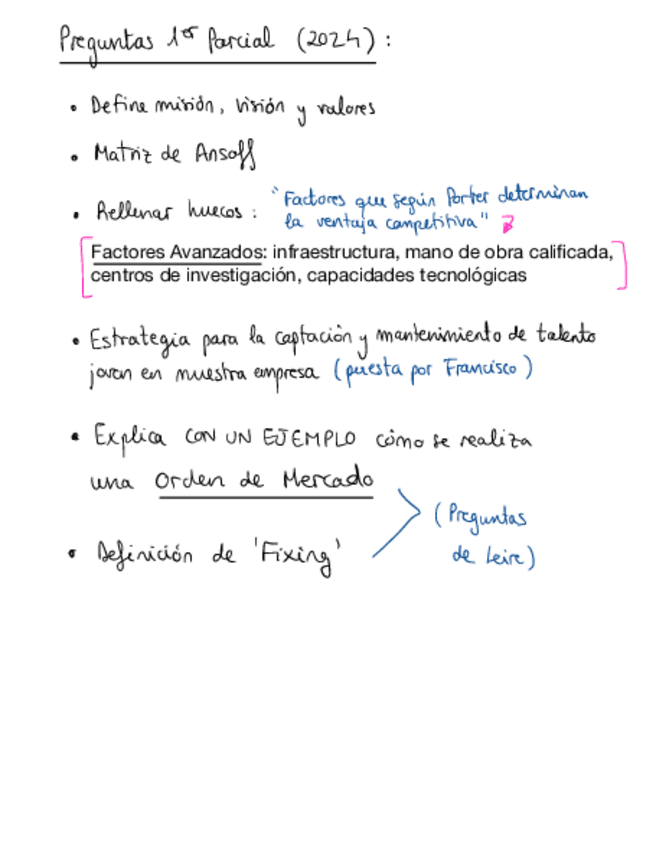 Preguntas 1er Parcial (2024):
• Define misión, visión y valores
• Matriz de Ansoff
• Rellenar huecos: "Factores que según Porter determinan
la ventaja competitiva"
Factores Avanzados: infraestructura, mano de obra calificada,
centros de investigación, capacidades tecnológicas
• Estrategia para la captación y mantenimiento de talento
joven en nuestra empresa (puesta por Francisco)
• Explica CON UN EJEMPLO cómo se realiza
una Orden de Mercado
(Preguntas
• Definición de 'Fixing'
de Leire)